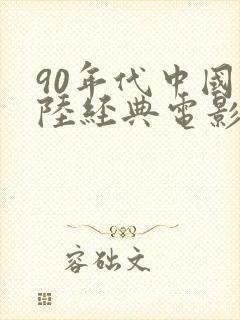 90年代中國
陸經典電影
容础文